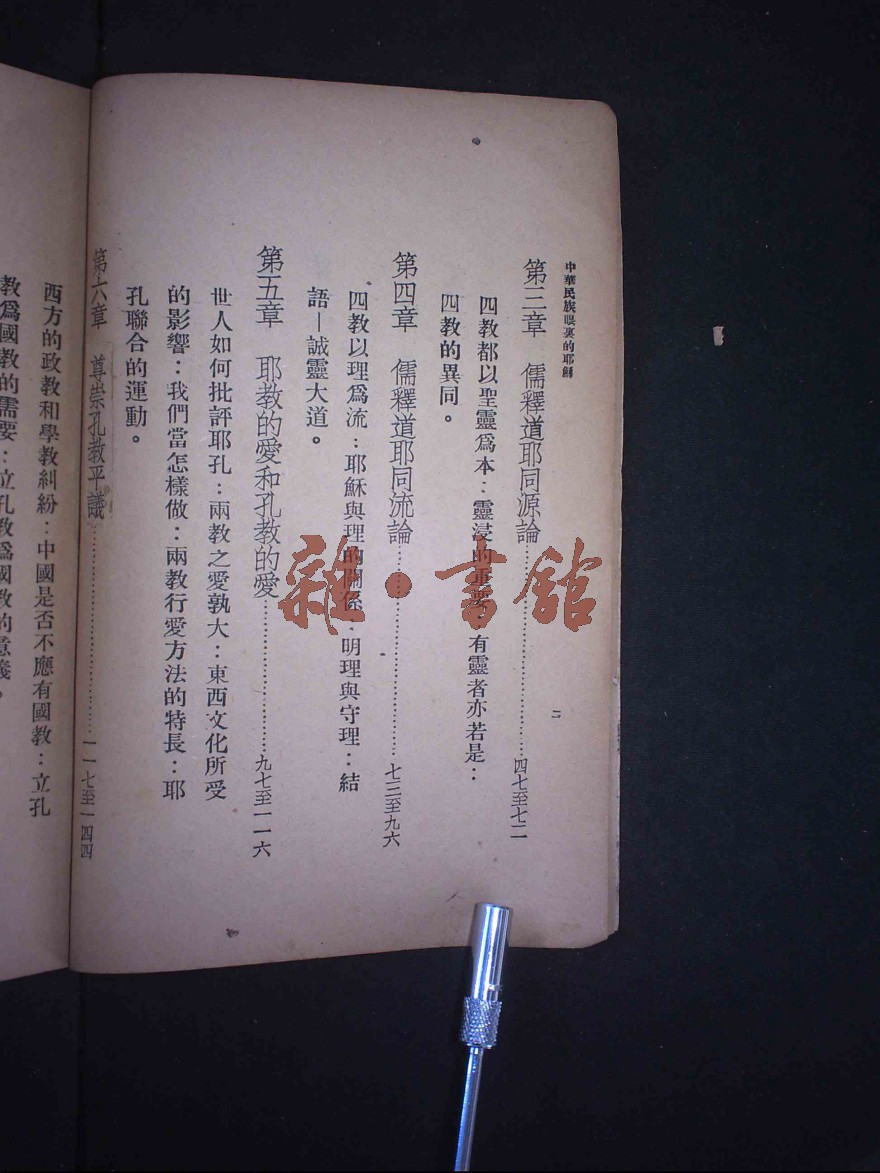 中華民族眼裏的耶穌
二
第三章　儒釋道耶同源論……………………四七至七二
四教都以聖靈爲本：靈浸的重要：有靈者亦若是：
四教的異同。
第四章　儒釋道耶同流論……………………七三至九六
四教以理爲流：耶穌與理的關係：明理與守理：結
語—誠靈大道。
第五章　耶教的愛和孔教的愛……………………九七至一一六
世人如何批評耶孔：兩教之愛孰大：東西文化所受
的影響：我們當怎樣做：兩教行愛方法的特長：耶
孔聯合的運動。
第六章　尊崇孔教平議……………………一一七至一四四
西方的政教和學教糾紛：中國是否不應有國教：立孔
教爲國教的需要：立孔教爲國教的意義。
雜·書館